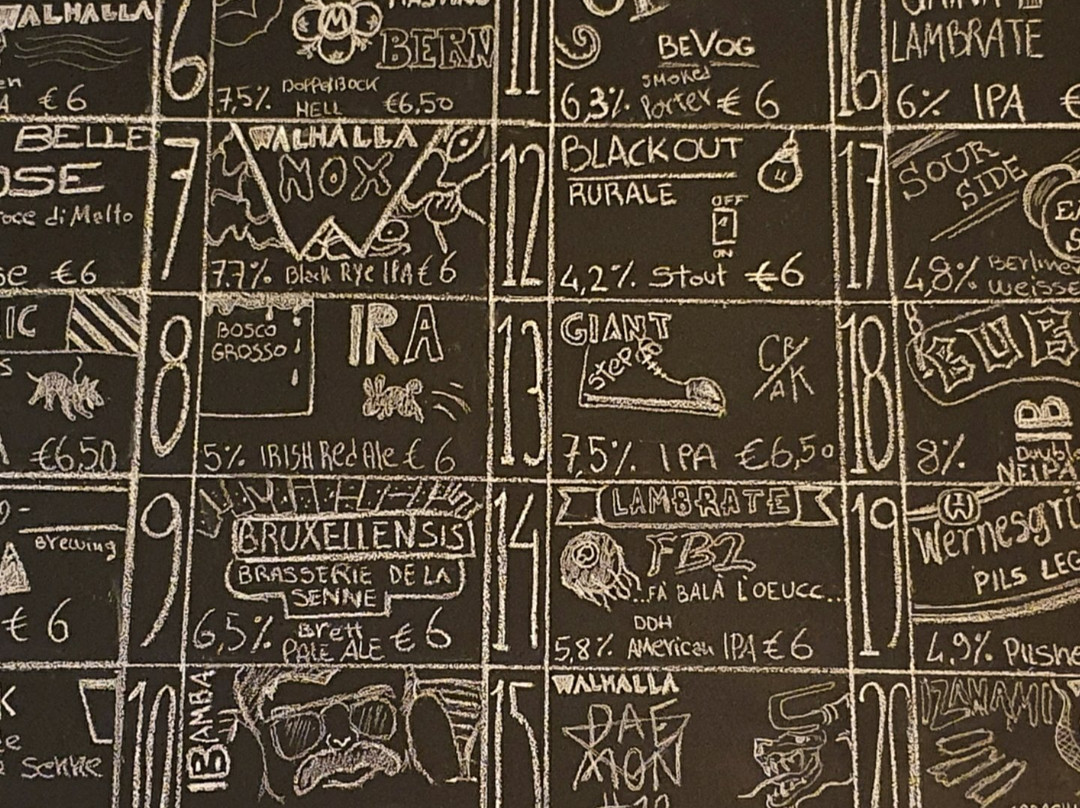 WALHALLA
€6
BELLE
OSE
roce di Malto
se €6
IC
S
€6,50
Brewing
€ 6
K
Senne
6
BERN
7,5% DOPPELBOCK
HELL €6,50
7
WALHALLA
NOX
7.7% Black RYE IPA € 6
8
BOSCO
GROSSO
IRA
5% IRISH Red Ale € 6
9
BRUXELLENSIS
BRASSERIE DE LA
SENNE
6,5% Brett
PALE ALE € 6
10
IBAMBA
11
BEVOG
6,3% SMOKED
Porter € 6
12
BLACKOUT
RURALE
OFF
ON
4,2% Stout €6
13
GIANT
Step
CR/
AK
7,5% IPA €6,50
14
LAMBRATE
FB2
...FÀ BALÀ L'OEUCC...
DDH
5,8% American IPA € 6
15
WALHALLA
DAE
MON
16
LAMBRATE
6% IPA €
17
SOUR
SIDE
4,8% Berliner
Weisse
18
8%
Double
NEIPA
19
Wernesgrü
PILS LEG
4,9% Pilsne
20
IZANAMI